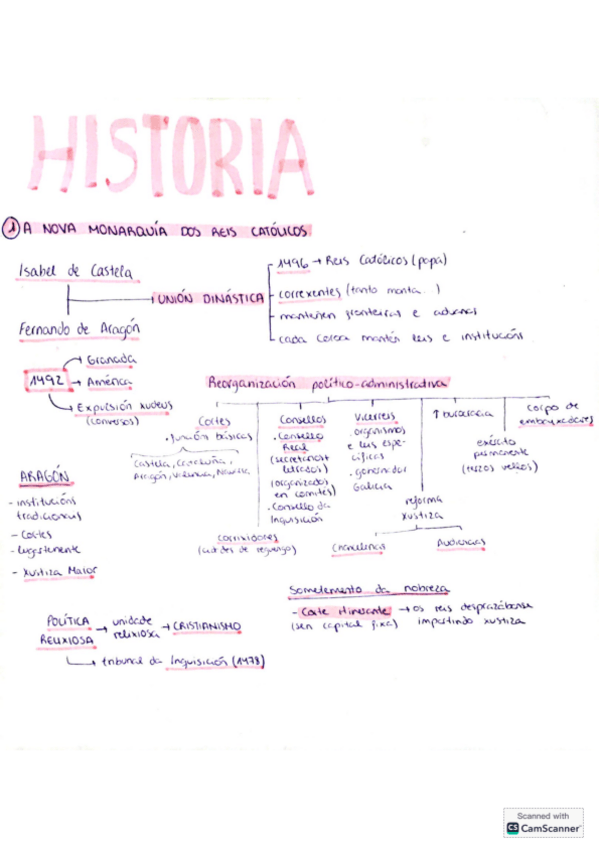 HISTORIA
1 A NOVA MONARQUÍA DOS REIS CATÓLICOS
Isabel de Castela
Fernando de Aragón
UNIÓN DINÁSTICA
1496 → Reis Católicos (papa)
correxentes (tanto monta...)
manteñen fronteiras e aduanas
cada coroa mantén leis e institucións
1492
→ Granada
→ América
→ Expulsión xudeus
(conversos)
Reorganización político-administrativa
Cortes
. función básicas
Castela, Cataluña,
Aragón, Valencia, Navarra
Corrixidores
(cidades de reguengo)
Consellos
. Consello
Real
(secretarios +
letrados)
(organizados
en comités)
. Consello da
Inquisición
Vicerreis
. organismos
e leis espe-
cíficas
. gobernador
Galicia
↑ burocracia
reforma
xustiza
Chancelería
Audiencias
exército
permanente
(terzos vellos)
corpo de
embaixadores
ARAGÓN
- institucións
tradicionais
- Cortes
- lugartenente
- Xustiza Maior
Sometemento da nobreza
- Corte itinerante → os reis desprazábanse
(sen capital fixa) impartindo xustiza
POLÍTICA
RELIXIOSA
→ unidade
relixiosa
→ CRISTIANISMO
→ tribunal da Inquisición (1478)
Scanned with
CS CamScanner